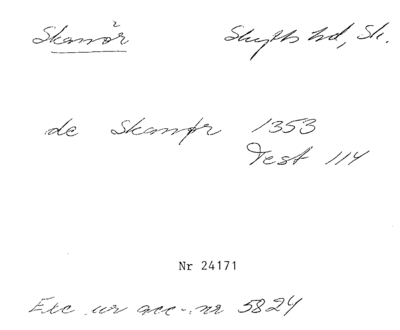 Skanör Skytts hd, Sk.
de Skanør 1353
Test 114
Nr 24171
Exc. ur acc-nr 5824